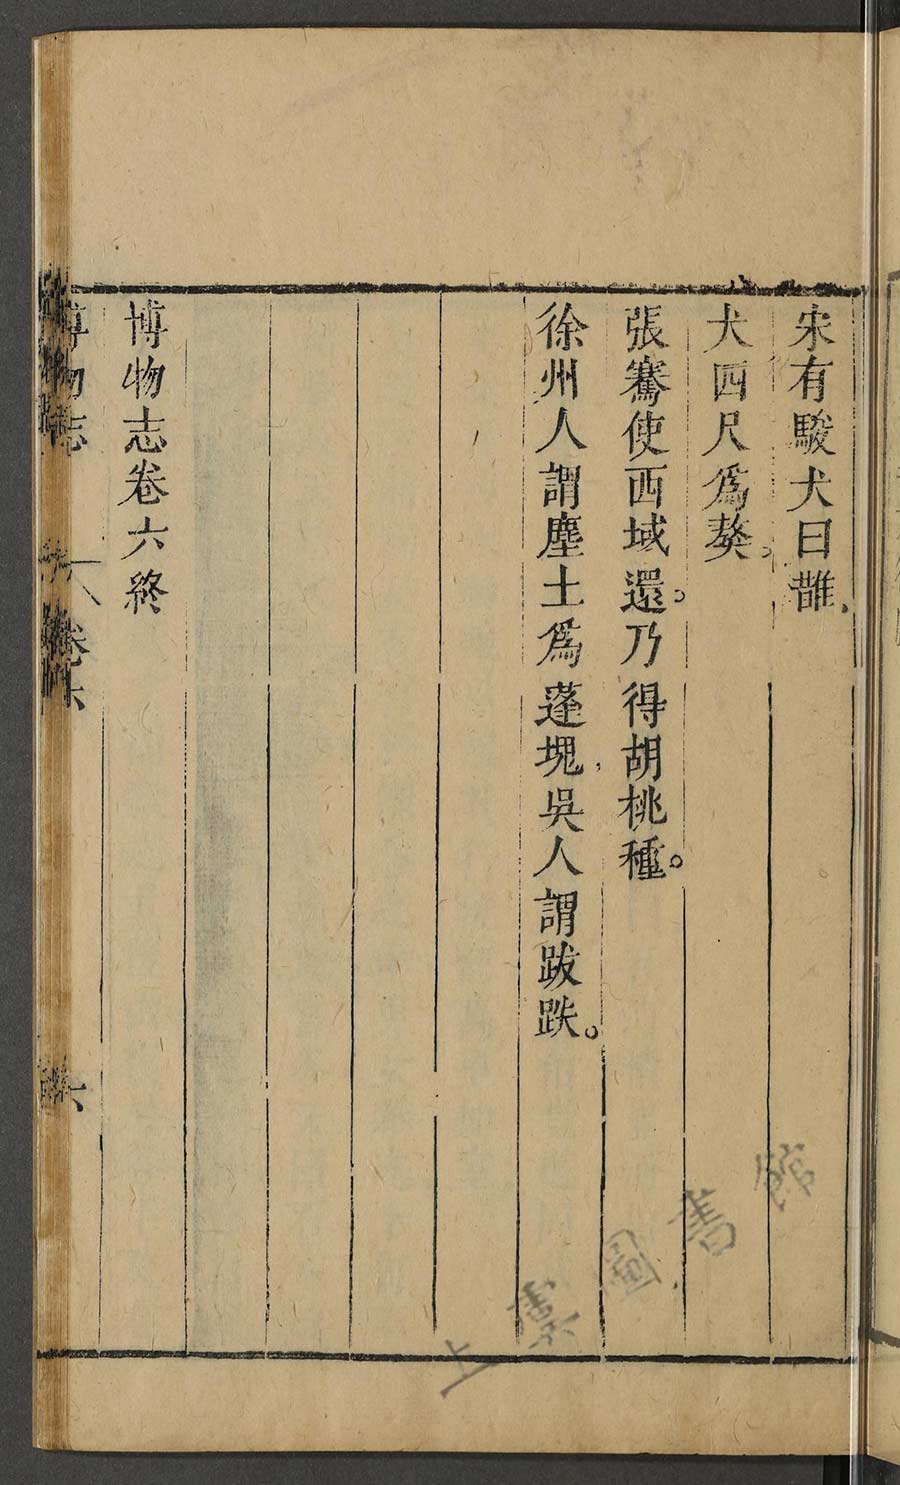 宋有駿犬曰䧿
犬四尺爲獒。
張騫使西域還。乃得胡桃種。
徐州人謂塵土爲蓬塊吳人謂跋跌。
博物志卷六終
博物志
卷六
六
上虞圖書館